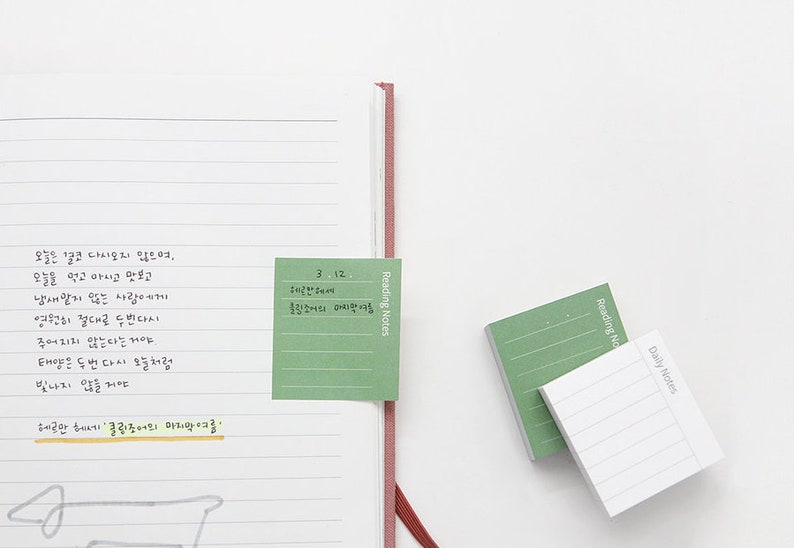 오늘은 결코 다시오지 않으며,
오늘을 먹고 마시고 맛보고
냄새맡지 않는 사람에게
영원히 절대로 두번다시
주어지지 않는다는거야.
태양은 두번 다시 오늘처럼
빛나지 않을거야
헤르만 헤세 '클링조어의 마지막 여름'
3. 12.
헤르만헤세
클링조어의 마지막여름
Reading Notes
Reading No
Daily Notes